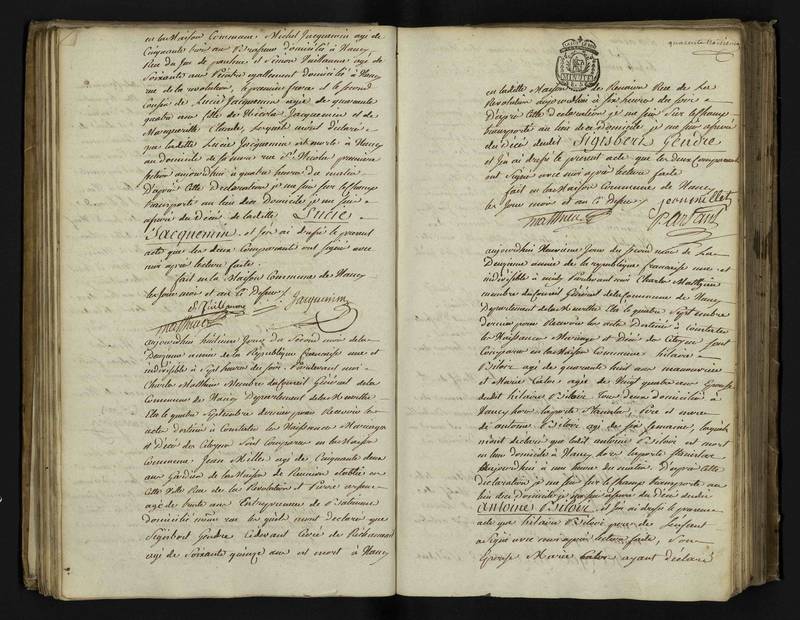 en la Maison Commune Michel Jacquemin agé de
Cinquante trois ans Brasseur domicilié à Nancy
Rue du et Simon Vuillaume agé de
Soixante ans Peintre egallement domicilié à Nancy
rue de la revolution, le premier frere et le second
Cousin de Lucie Jacquemin agée de quarante
quatre ans fille de Nicolas Jacquemin et de
Claude, lesquels m'ont déclaré
que ladite Lucie Jacquemin est morte à Nancy
au domicile de rue St Nicolas premiere
section aujourdhui à quatre heures du matin
D'après cette Declaration je me suis sur le champ
transporté au lieu dudit domicile je me suis
assuré du Décès de ladite Lucie
Jacquemin et j'en ai dressé le present
acte que les deux Comparants ont signé avec
moi après lecture faite.
fait en la Maison Commune de Nancy
les Jour mois et an ci Dessus /.
S. Vuillaume Jacquemin
Matthieu
aujourdhui huitieme Jour du Second mois de la
Deuxieme année de la République francaise une et
indivisible à Sept heures du soir. Pardevant moi
Charles Matthieu Membre du Conseil Général de la
Commune de Nancy Departement de la Meurthe
Elu le quatre Septembre dernier pour Recevoir les
actes destinés à Constater les Naissances Mariages
et Décès des Citoyens Sont Comparus en la Maison
Commune Jean Millet agé de Cinquante deux
ans Gardien de la Maison de Reunion établie en
Cette Ville Rue de la Revolution et Pierre
agé de trente ans Entrepreneur de Batimens
Domicilié même rue lesquels m'ont declaré que
Sigisbert Gendre Cidevant Curé de
agé de Soixante quinze ans est mort à Nancy
quarante troisieme
en ladite Maison de Reunion Rue de La
Revolution aujourdhui à six heures du soir
D'après cette declaration je me suis sur le champ
transporté au lieu dudit domicile je me suis assuré
du décès dudit Sigisbert Gendre
et j'en ai dressé le present acte que les deux Comparants
ont Signé avec moi après lecture faite
fait en la Maison Commune de Nancy
les Jour mois et an ci Dessus /. jean millet
Matthieu
aujourdhui Neuvieme Jour du second mois de La
Deuxieme année de la république francaise une et
indivisible à midy Pardevant moi Charles Matthieu
membre du Conseil Général de la Commune de Nancy
Département de la Meurthe Elu le quatre Septembre
dernier pour Recevoir les actes Destinés à Constater
les Naissances Mariages et Décès des Citoyens Sont
Comparus en la Maison Commune hilaire
agé de quarante huit ans manoeuvre
et Marie agée de Vingt quatre ans Epouse
dudit hilaire tous deux domiciliés à
Nancy hors la porte Stanislas, Pere et mere
de antoine agé de six Semaines, lesquels
m'ont declaré que ledit antoine est mort
en leur domicile à Nancy hors la porte Stanislas
Aujourdhui à une heure du matin. D'après cette
déclaration je me suis sur le champ transporté au
lieu dudit domicile je me suis assuré du décès dudit
Antoine et j'en ai dressé le present
acte que hilaire pere de l'enfant
a Signé avec moi après lecture faite, Son
Epouse Marie ayant déclaré